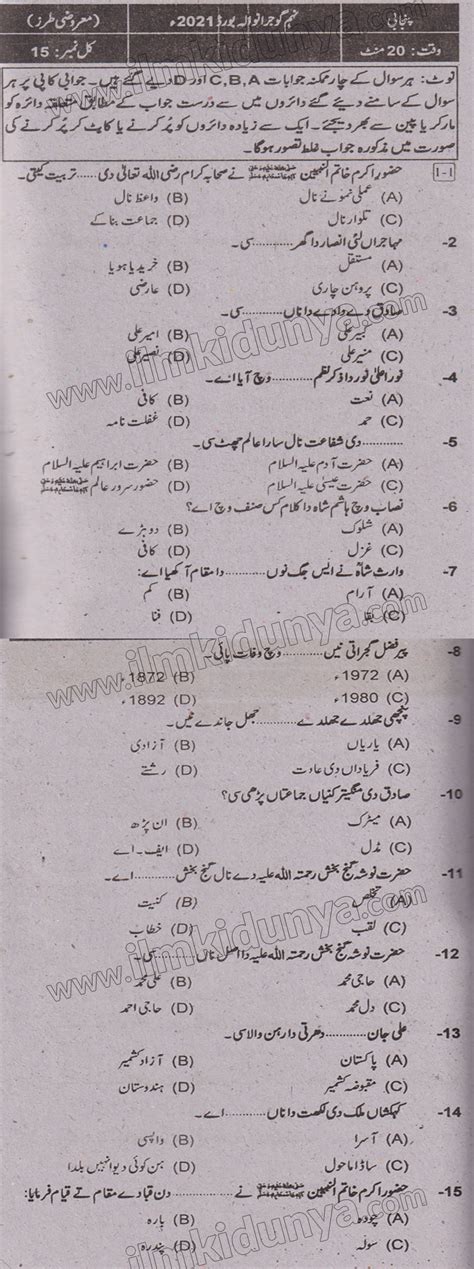 پنجابی نہم گوجرانوالہ بورڈ 2021ء (معروضی طرز)
وقت: 20 منٹ کل نمبر: 15
نوٹ: ہر سوال کے چار ممکنہ جوابات C,B,A اور D دیے گئے ہیں۔ جوابی کاپی پر ہر
سوال کے سامنے دیئے گئے دائروں میں سے درست جواب کے مطابق متعلقہ دائرہ کو
مارکر یا پین سے بھر دیجئے۔ ایک سے زیادہ دائروں کو پُر کرنے یا کاٹ کر پُر کرنے کی
صورت میں مذکورہ جواب غلط تصور ہوگا۔
1-I حضور اکرم خاتم النبیین ﷺ نے صحابہ کرام رضی اللہ تعالیٰ دی ............ تربیت کیتی۔
(A) عملی نمونے نال (B) واعظ نال
(C) تلوار نال (D) جماعت بنا کے
2- مہاجراں لئی انصار دا گھر ............ سی۔
(A) مستقل (B) خریدیا ہویا
(C) پروہن چاری (D) عارضی
3- صادق دے دادے دا ناں ............ سی۔
(A) کبیر علی (B) امیر علی
(C) منیر علی (D) نصیر علی
4- نور اعلیٰ نور دا ذکر نظم ............ وچ آیا اے۔
(A) نعت (B) کافی
(C) حمد (D) غفلت نامہ
5- ............ دی شفاعت نال سارا عالم چھٹ سی۔
(A) حضرت آدم علیہ السلام (B) حضرت ابراہیم علیہ السلام
(C) حضرت عیسیٰ علیہ السلام (D) حضور سرور عالم ﷺ
6- نصاب وچ ہاشم شاہ دا کلام کس صنف وچ اے؟
(A) شلوک (B) دوہڑے
(C) غزل (D) کافی
7- وارث شاہؒ نے ایس جگ نوں ............ دا مقام آکھیا اے:
(A) آرام (B) کم
(C) بقا (D) فنا
8- پیر فضل گجراتی نیں ............ وچ وفات پائی۔
(A) 1972ء (B) 1872ء
(C) 1980ء (D) 1892ء
9- پنچھی جھلدے جھلدے ............ جھل جاندے نیں۔
(A) یاریاں (B) آزادی
(C) فریاداں دی عادت (D) رشتے
10- صادق دی منگیتر کنیاں جماعتاں پڑھی سی؟
(A) میٹرک (B) ان پڑھ
(C) مڈل (D) ایف۔ اے
11- حضرت نوشہ گنج بخش رحمتہ اللہ علیہ دے نال گنج بخش ............ اے۔
(A) تخلص (B) کنیت
(C) لقب (D) خطاب
12- حضرت نوشہ گنج بخش رحمتہ اللہ علیہ دا اصل ناں ............ سی۔
(A) حاجی محمد (B) علی محمد
(C) دل محمد (D) حاجی احمد
13- علی جان ............ دھرتی دا رہن والا سی۔
(A) پاکستان (B) آزاد کشمیر
(C) مقبوضہ کشمیر (D) ہندوستان
14- کہکشاں ملک دی لکھت دا ناں ............ اے۔
(A) آسرا (B) واپسی
(C) ساڈا ماحول (D) ہن کوئی دیوا نہیں بلدا
15- حضور اکرم خاتم النبیین ﷺ نے ............ دن قبا دے مقام تے قیام فرمایا:
(A) چودہ (B) بارہ
(C) سولہ (D) پندرہ
www.ilmkidunya.com
www.ilmkidunya.com
www.ilmkidunya.com
www.ilmkidunya.com
www.ilmkidunya.com